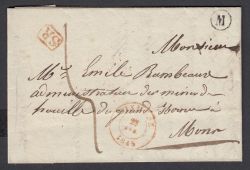 M
SR
Monsieur
Mr. Emile Rambeaux
administrateur des mines de
houille du grand Hornu à
Mons